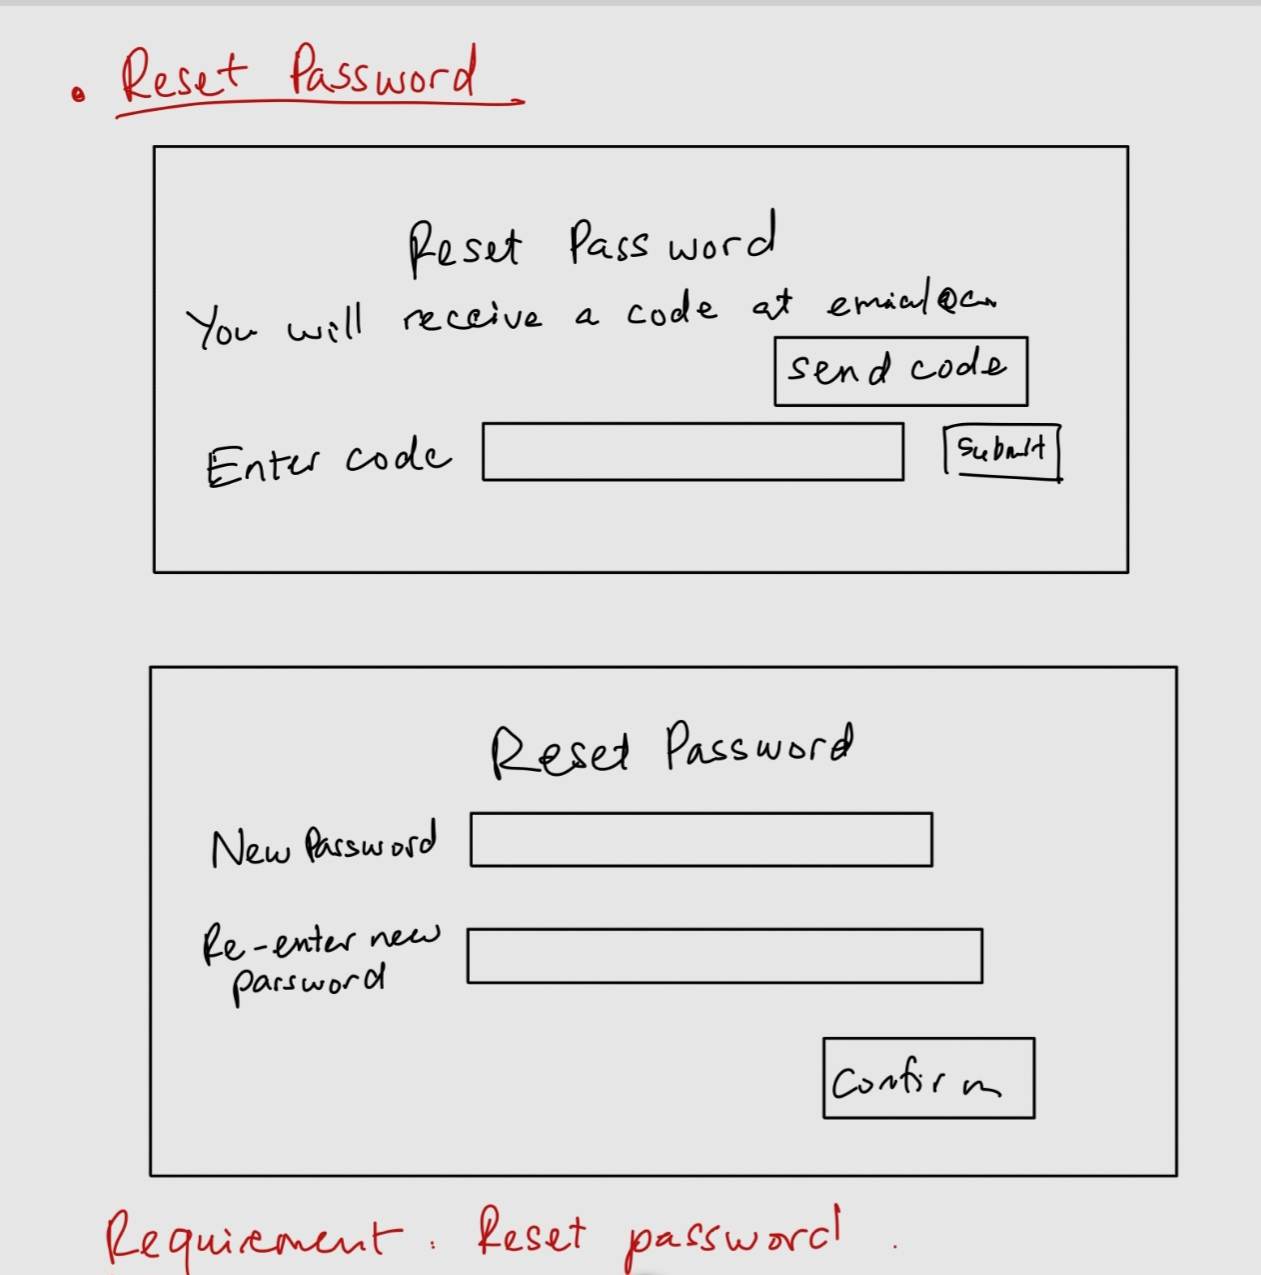 Reset Password
Reset Password
You will receive a code at
send code
Enter code
Submit
Reset Password
New Password
Re-enter new
password
Confirm
Requirement : Reset password.